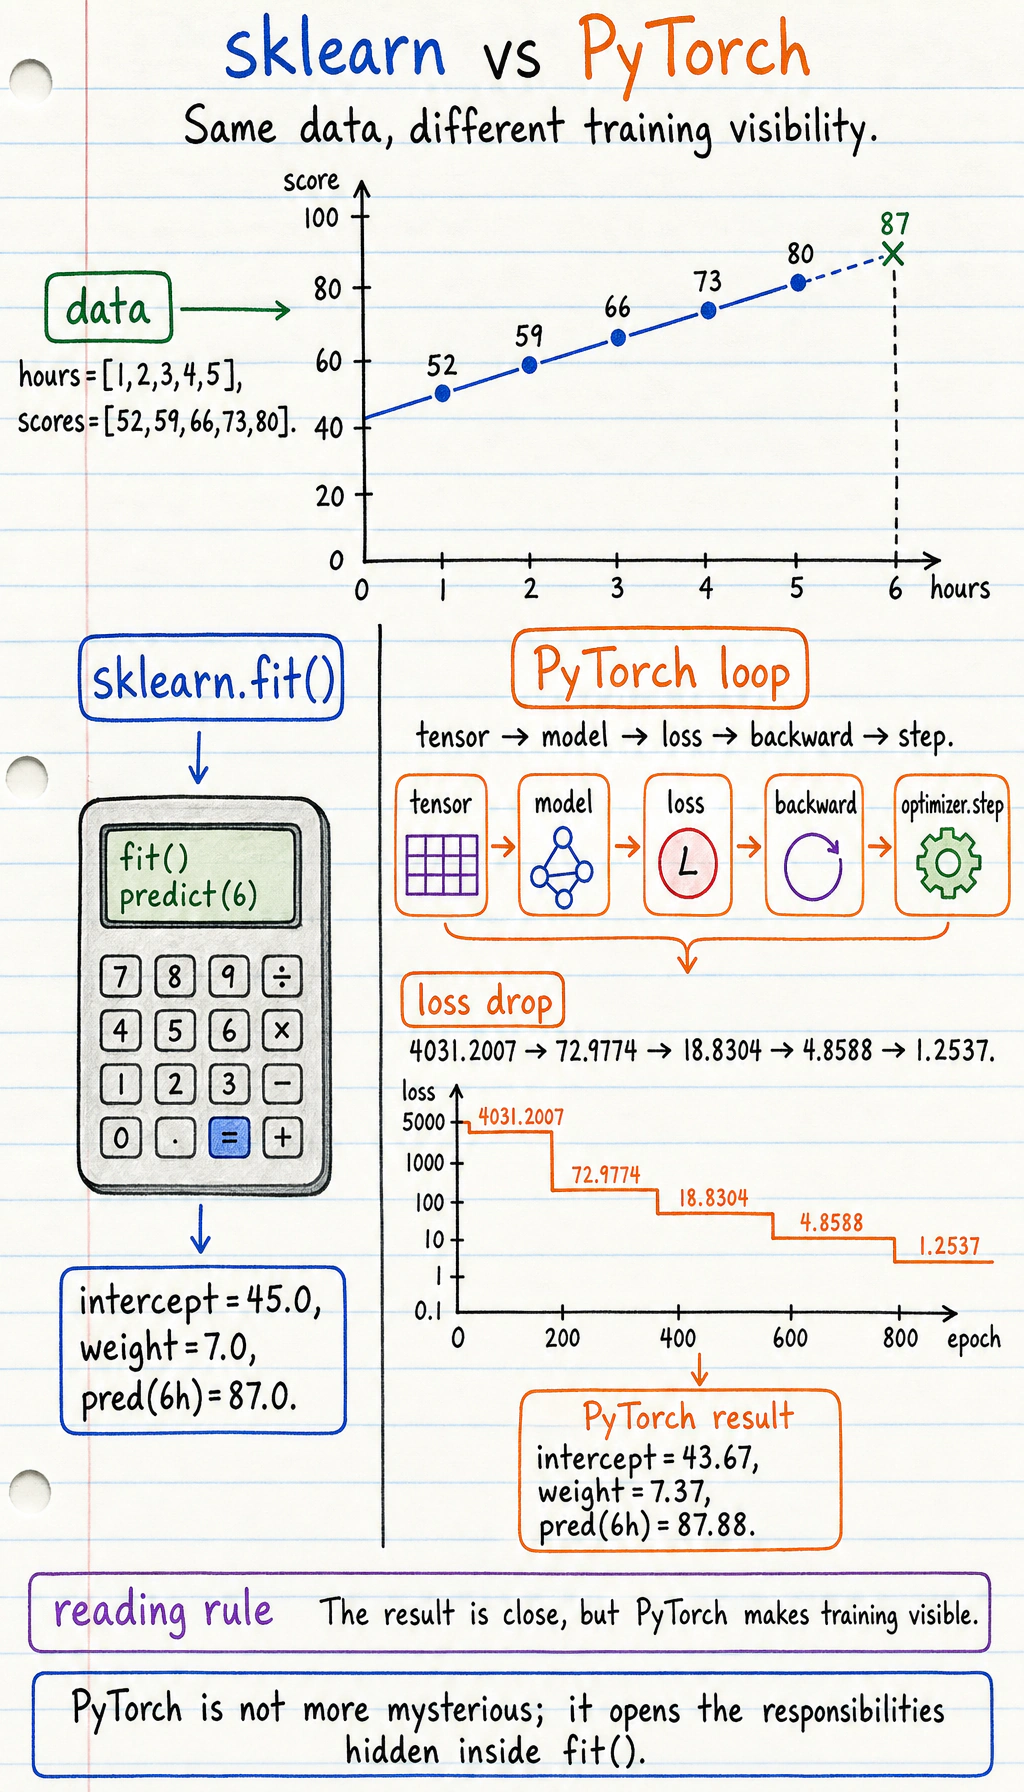 sklearn vs PyTorch
Same data, different training visibility.
score
100
80
60
40
20
0
52
59
66
73
80
87
0 1 2 3 4 5 6 hours
data
hours=[1,2,3,4,5],
scores=[52,59,66,73,80].
sklearn.fit()
fit()
predict(6)
7 8 9 ÷
4 5 6 ×
1 2 3 −
0 . = +
intercept=45.0,
weight=7.0,
pred(6h)=87.0.
PyTorch loop
tensor → model → loss → backward → step.
tensor
model
loss
L
backward
optimizer.step
loss drop
4031.2007 → 72.9774 → 18.8304 → 4.8588 → 1.2537.
loss
5000
1000
100
10
1
0.1
4031.2007
72.9774
18.8304
4.8588
1.2537
0 200 400 600 800 epoch
PyTorch result
intercept=43.67,
weight=7.37,
pred(6h)=87.88.
reading rule The result is close, but PyTorch makes training visible.
PyTorch is not more mysterious; it opens the responsibilities
hidden inside fit().